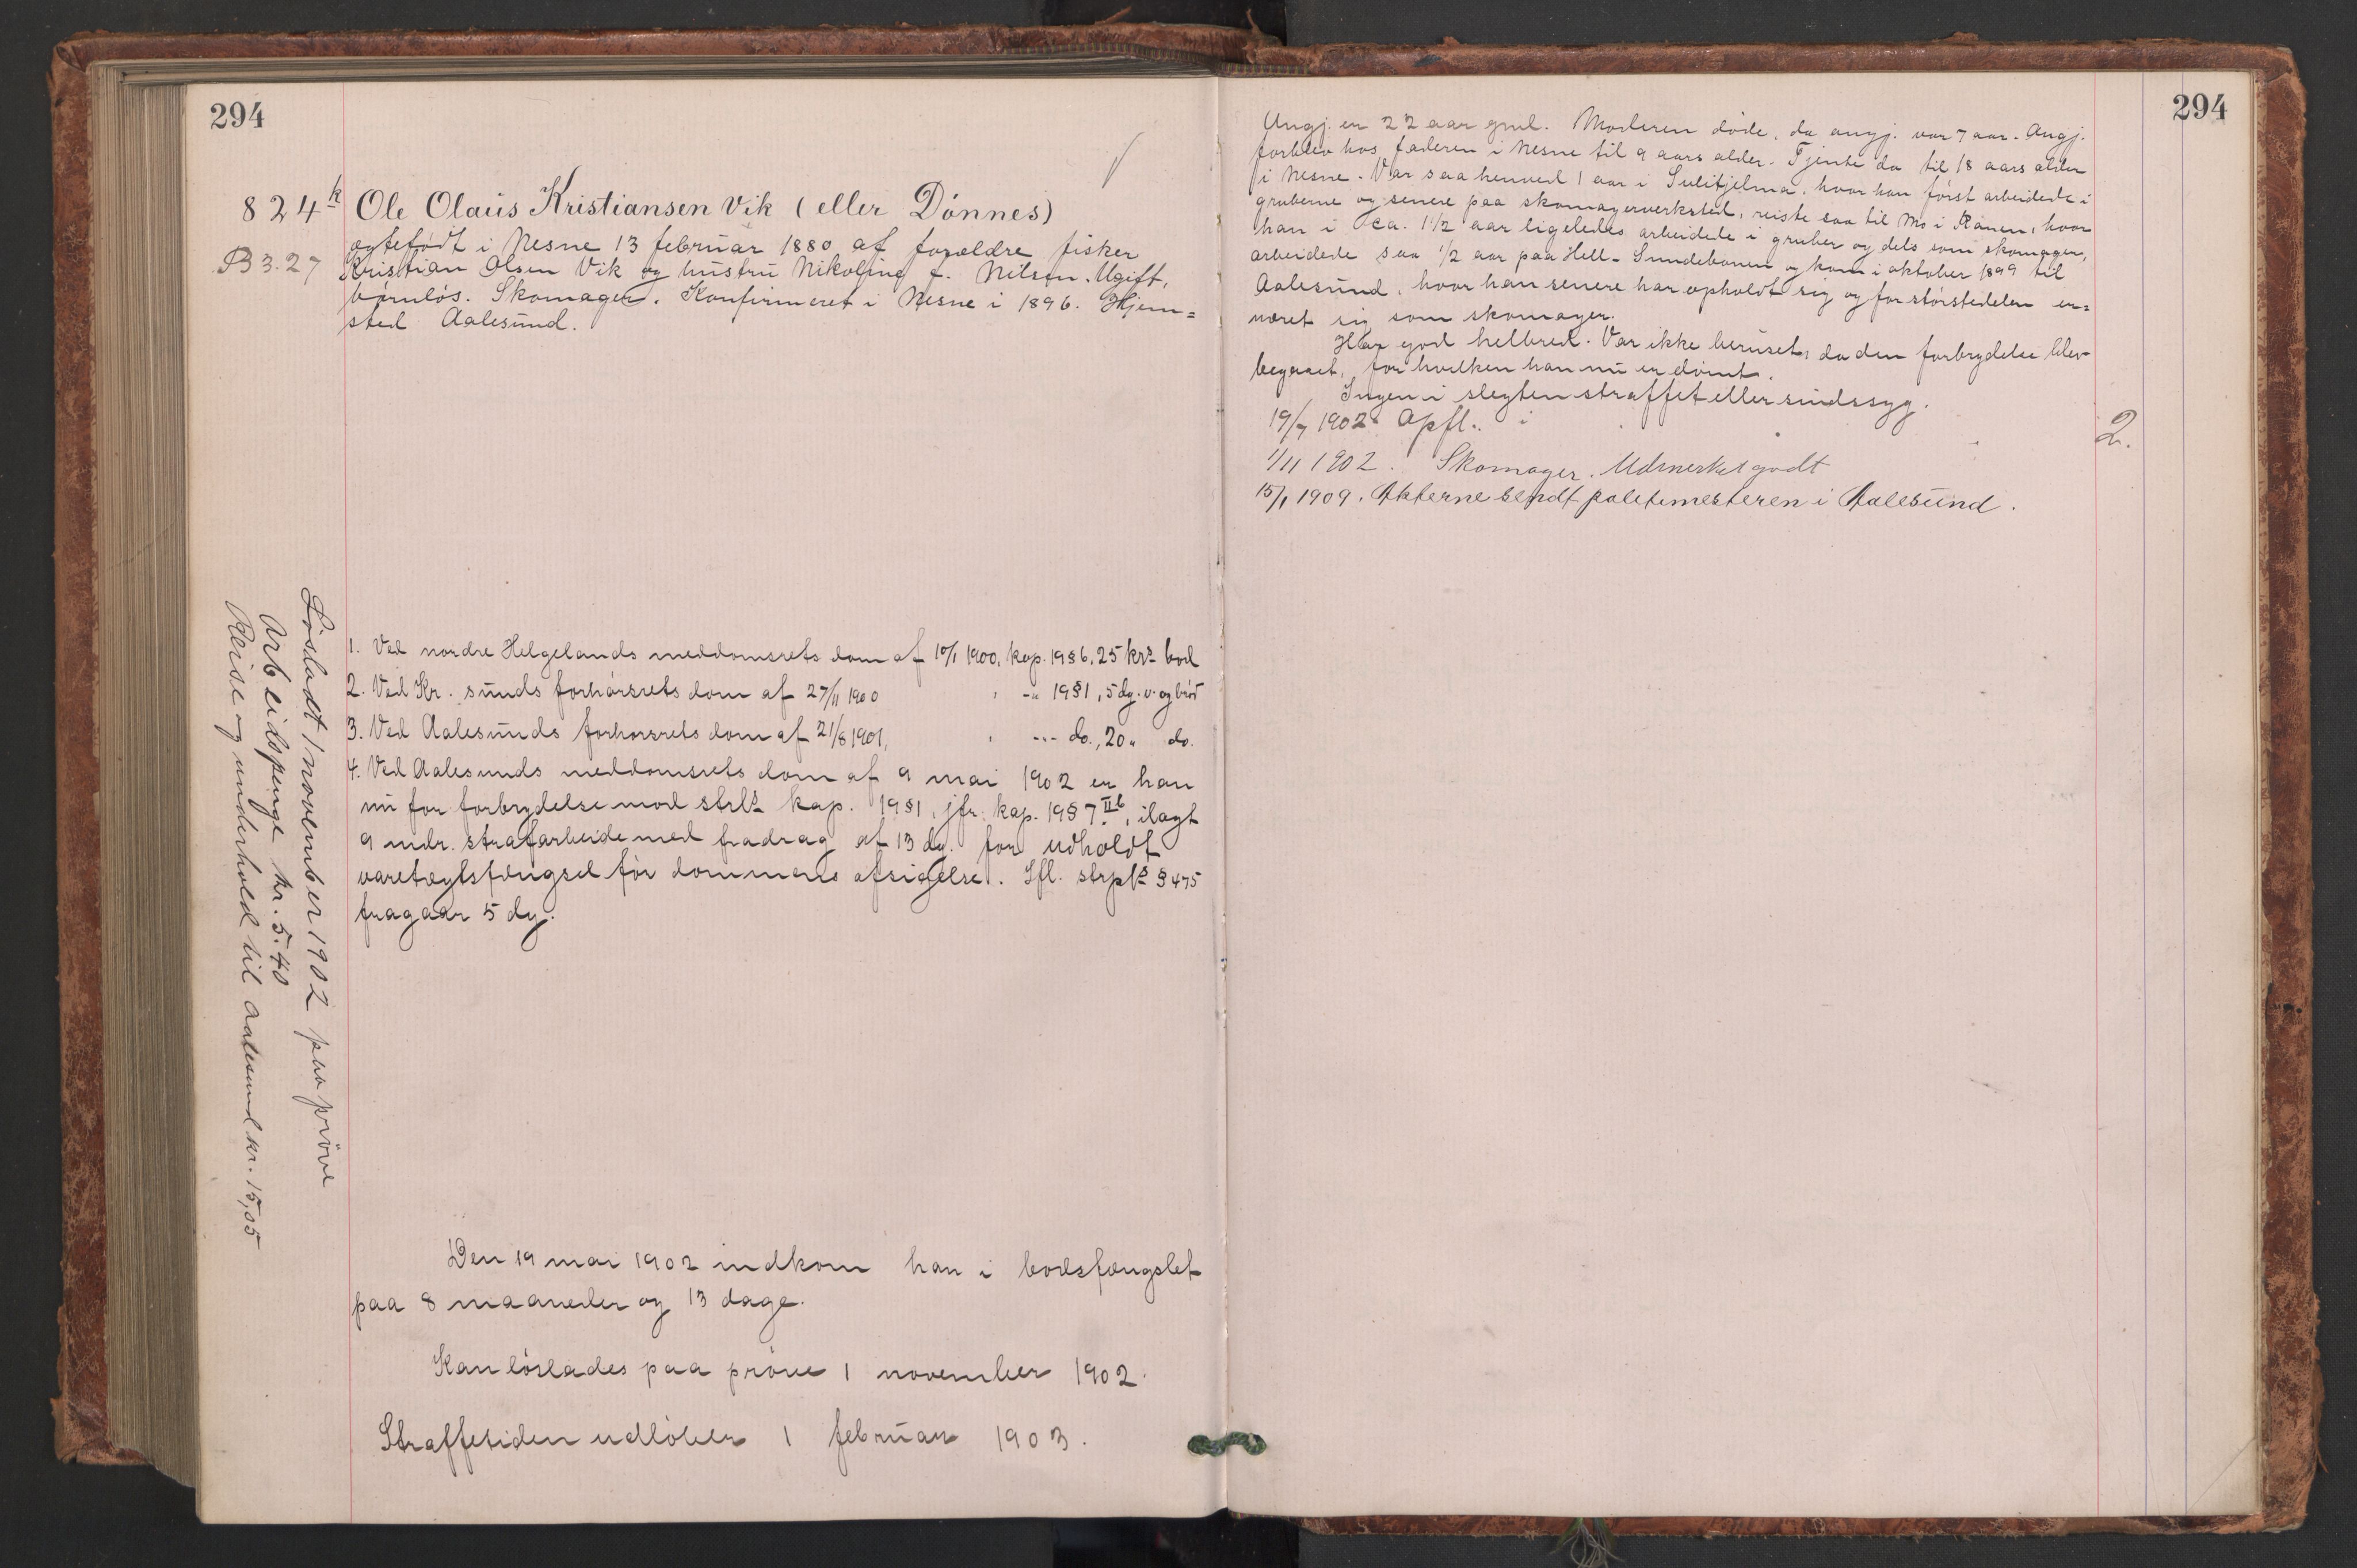 294
824k Ole Olaüs Kristiansen Vik (eller Dönnes)
B 3.27
egtefödt i Nesne 13 februar 1880 af forældre fisker
Kristian Olsen Vik og hustru Nikoline f. Nilsen. Ugift,
börnlös. Skomager. Konfirmeret i Nesne i 1896. Hjem=
sted Aalesund.
1. Ved nordre Helgelands meddomsrets dom af 10/1 1900, kap. 19 § 6, 25 krs bod
2. Ved Kr. sunds forhörsrets dom af 27/11 1900 " -" 19 § 1, 5 dg. v. og bröd
3. Ved Aalesunds forhorsrets dom af 21/8 1901, " --- do., 20 " do.
4. Ved Aalesunds meddomsrets dom af 9 mai 1902 er han
nu for forbrydelse mod strls kap. 19 § 1, jfr. kap. 19 § 7 II b, ilagt
9 mdr. strafarbeide med fradrag af 13 dg. for udholdt
varetægtsfængsel för dommens afsigelse. Ifl. strpls § 475
fragaar 5 dg.
Lösladt 1 november 1902 paa pröve
Arbeidspenge kr. 5.40
Reise og underhold til Aalesund kr. 15,05
Den 19 mai 1902 indkom han i bodsfængslet
paa 8 maaneder og 13 dage.
Kan löslades paa pröve 1 november 1902.
Straffetiden udlöber 1 februar 1903.
294
Angj. er 22 aar gml. Moderen döde, da angj. var 7 aar. Angj.
forblev hos faderen i Nesne til 9 aars alder. Tjente da til 18 aars alder
i Nesne. Var saa henved 1 aar i Sulitjelma, hvor han först arbeidede i
gruberne og senere paa skomagerverksted, reiste saa til Mo i Ranen, hvor
han i ca. 1 1/2 aar ligeledes arbeidede i gruber og dels som skomager,
arbeidede saa 1/2 aar paa Hell-Sundebanen og kom i oktober 1899 til
Aalesund, hvor han senere har opholdt sig og for störstedelen er=
næret sig som skomager.
Har god helbred. Var ikke beruset, da den forbrydelse blev
begaaet, for hvilken han nu er dömt.
Ingen i slegten straffet eller sindssyg.
19/7 1902. Opfl..
2.
1/11 1902. Skomager. Udmerket godt
15/1 1909. Akterne sendt politimesteren i Aalesund.